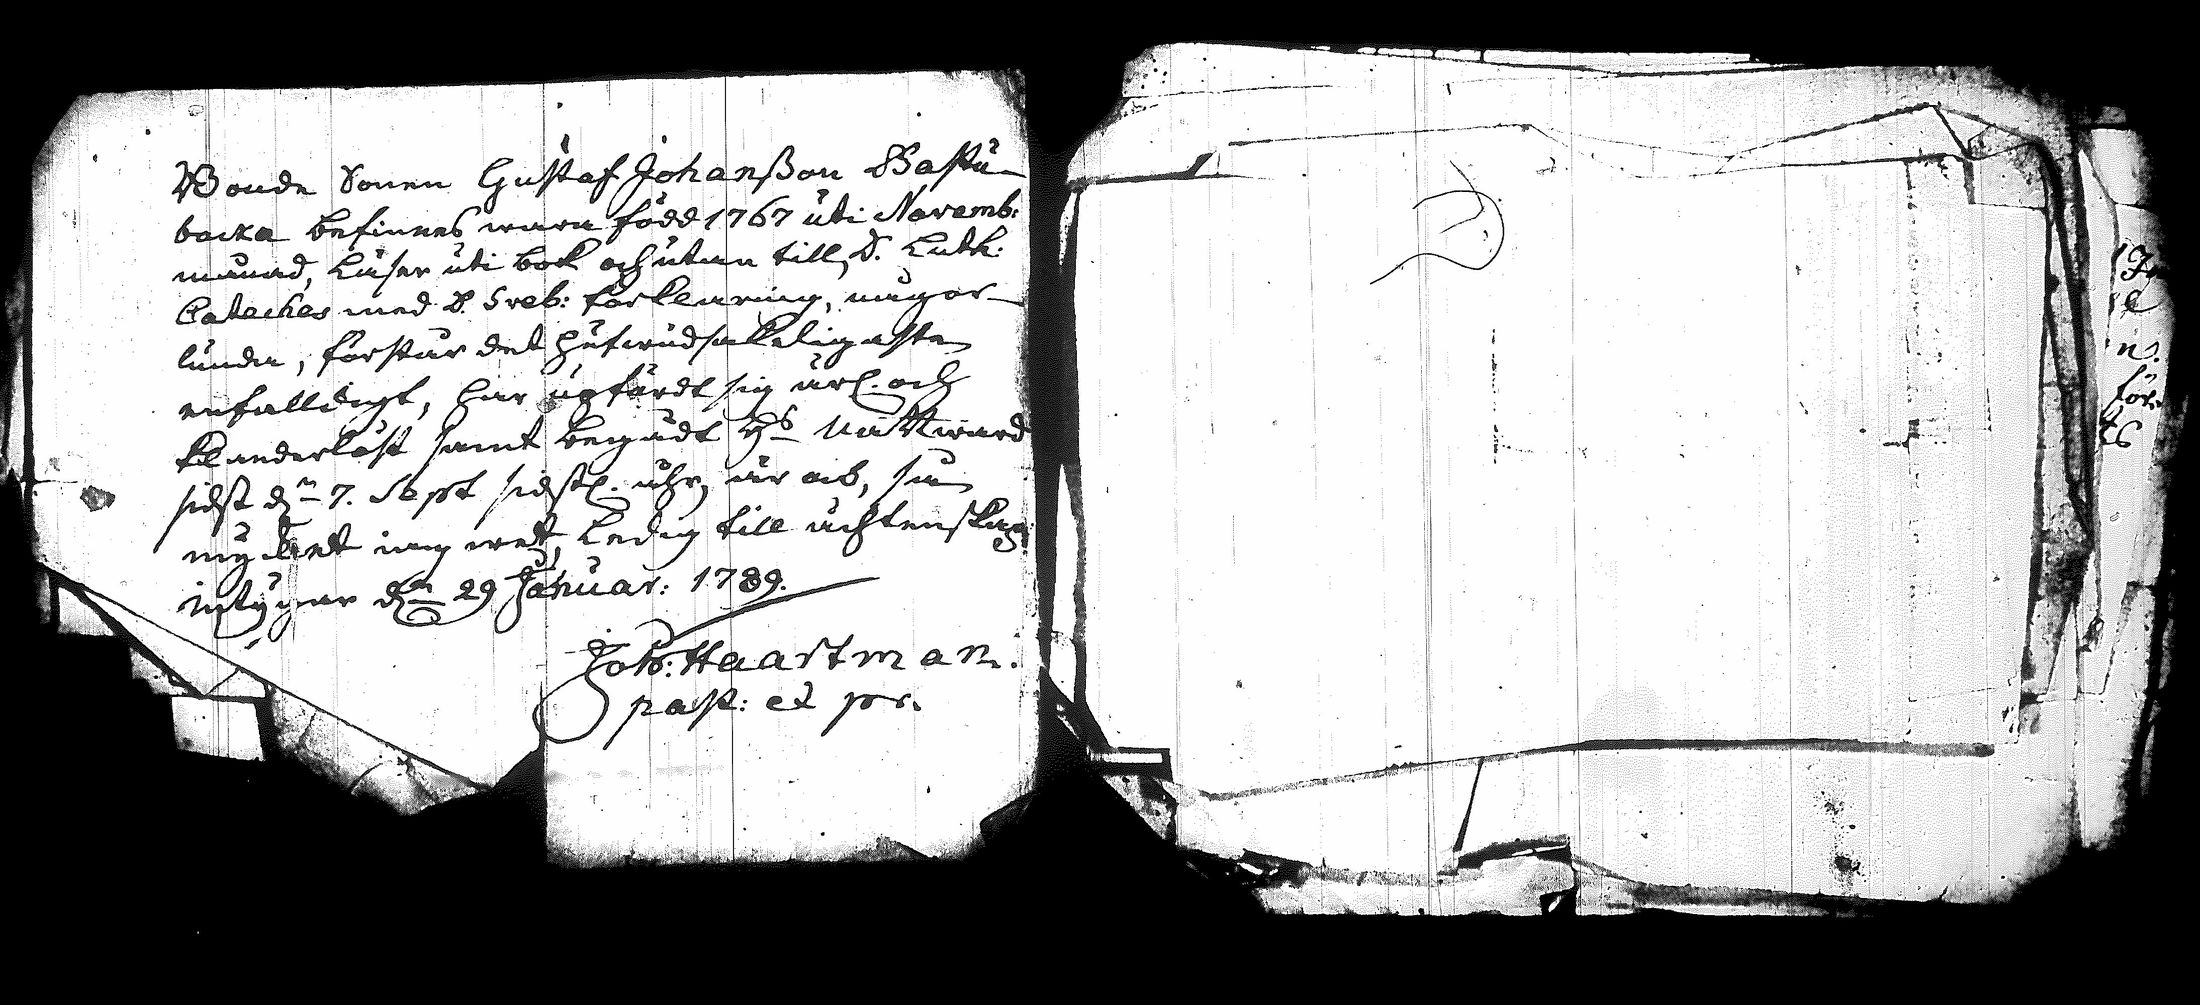 Bonde Sonen Gustaf Johanßon Bastu-
backa befinnes wara född 1767 uti Novemb:
månad, Läser uti bok och utan till, D. Luth:
Cateches med D. Sveb: förklaring, någor-
lunda, förstår det hufwudsakeligaste
enfalldigt, har upfördt sig ärl. och
klanderlöst samt begådt Hs Nattward
sidst dn 7. Sept sidstl. åhr, är ock, så
mycket jag wet, Ledig till ächtenskap
intygar dn 29 Januar: 1789.
Joh: Haartman.
past: et pr.